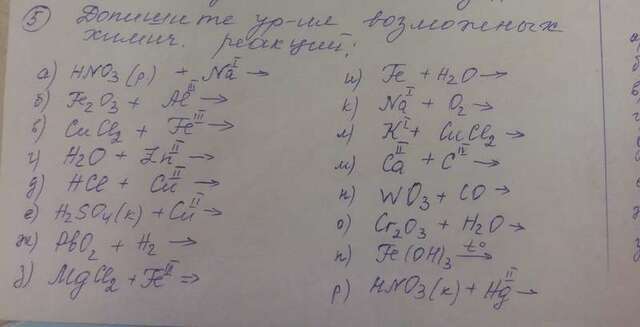 5 Допишите ур-ия возможных
химич. реакций:
а) HNO3(р) + Na^I →
б) Fe2O3 + Al^III →
в) CuCl2 + Fe^III →
г) H2O + Zn^II →
д) HCl + Cu^II →
е) H2SO4(к) + Cu^II →
ж) PbO2 + H2 →
з) MgCl2 + Fe^III →
и) Fe + H2O →
к) Na^I + O2 →
л) K^I + CuCl2 →
м) Ca^II + C^IV →
н) WO3 + CO →
о) Cr2O3 + H2O →
п) Fe(OH)3 t° →
р) HNO3(к) + Hg^II →